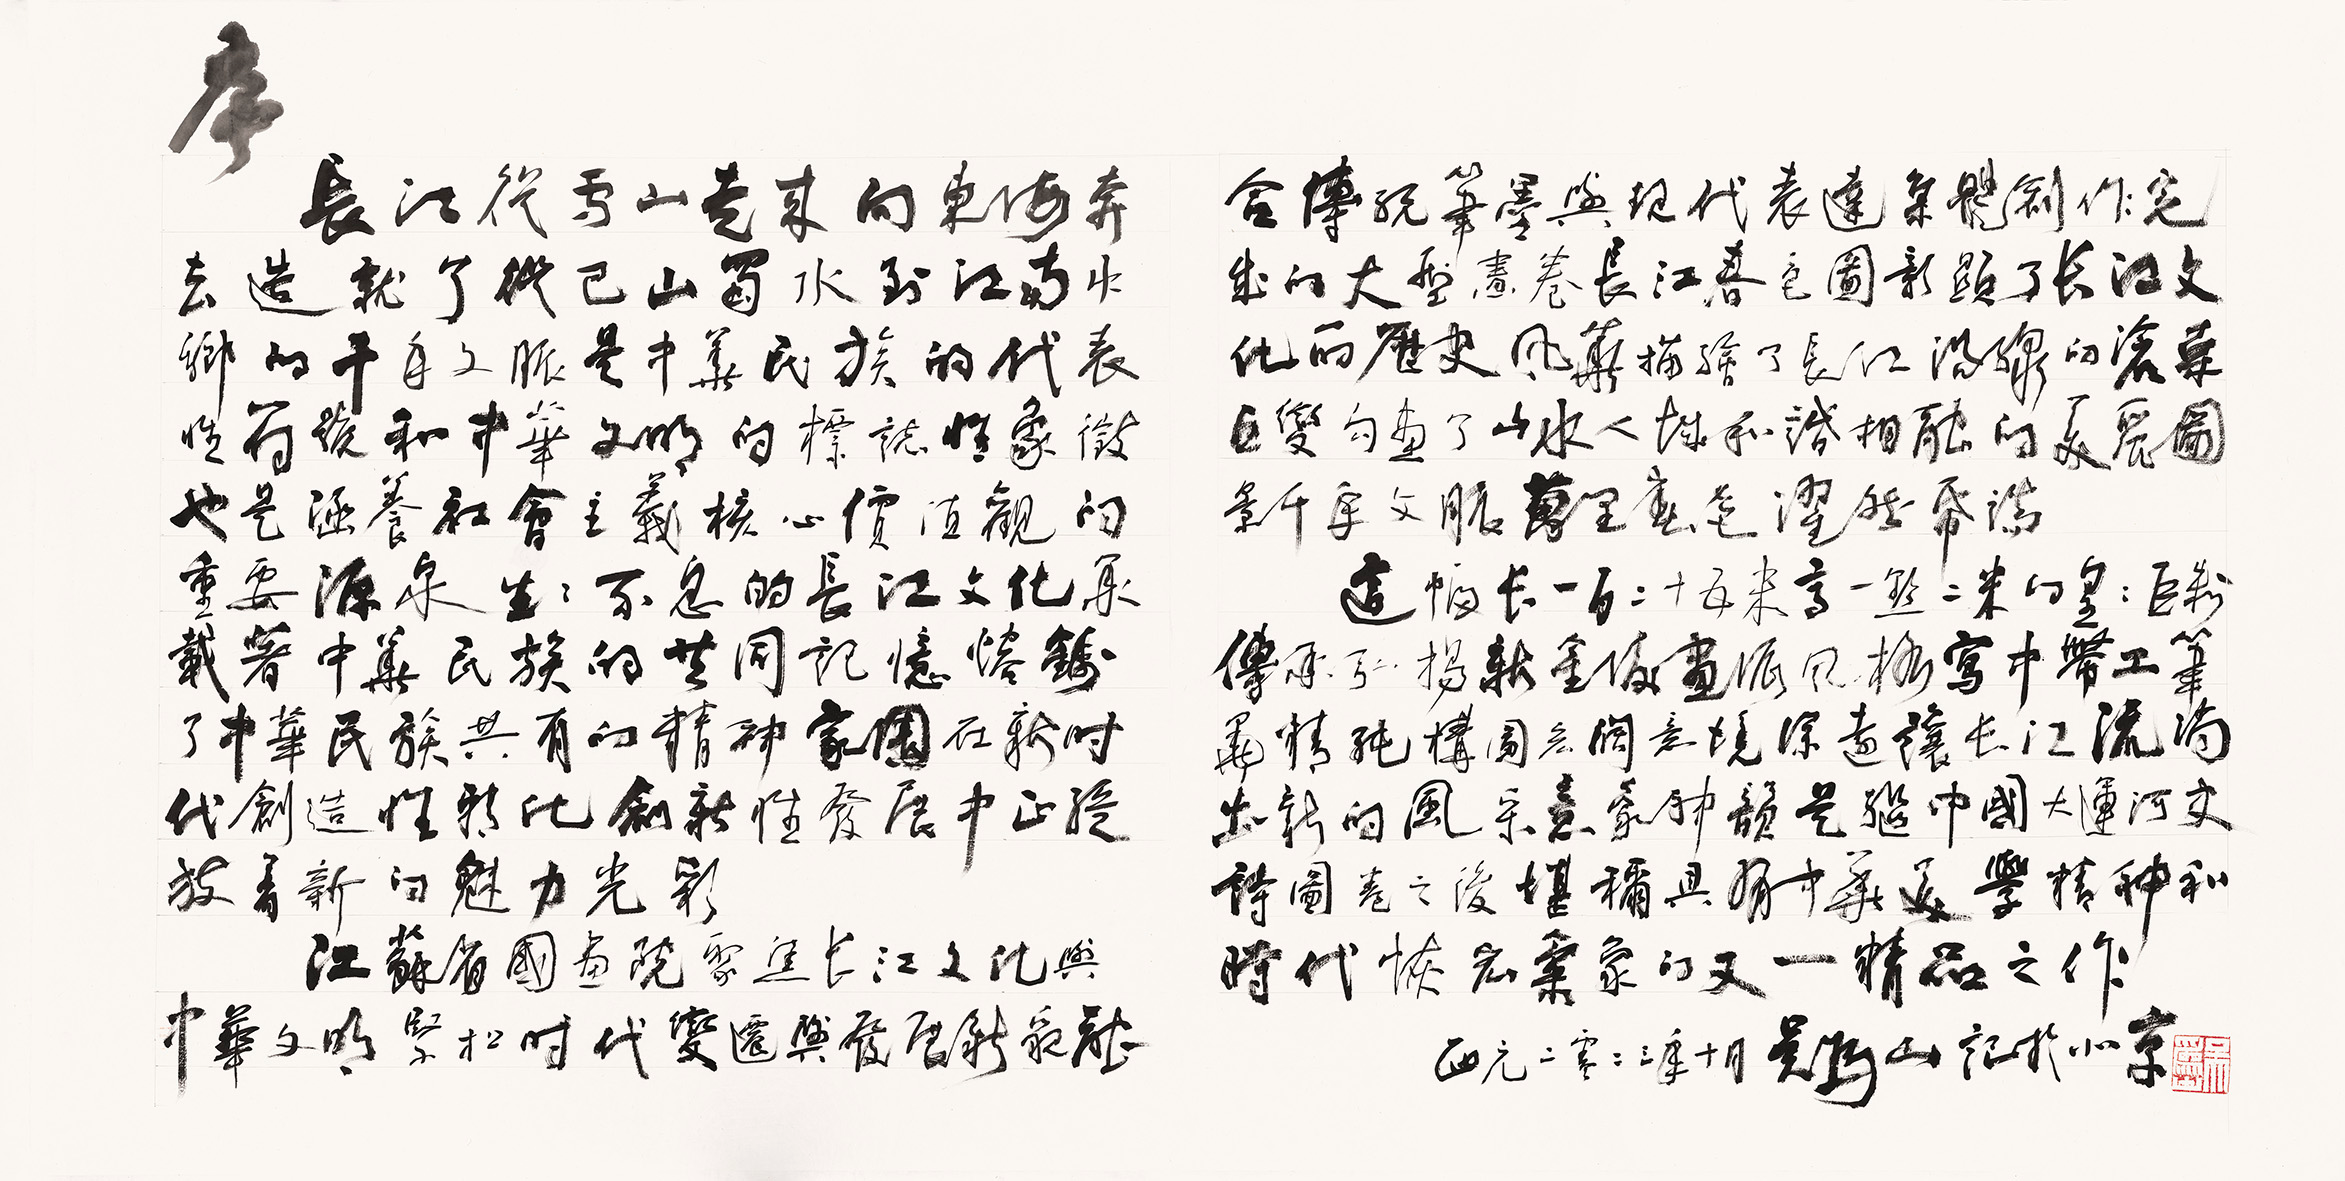 序
長江從雪山走來向東海奔
去造就了從巴山蜀水到江南水
鄉的千年文脈是中華民族的代表
性符號和中華文明的標誌性象徵
也是涵養社會主義核心價值觀的
重要源泉生生不息的長江文化承
載著中華民族的共同記憶熔鑄
了中華民族共有的精神家園在新时
代創造性轉化創新性發展中正綻
放着新的魅力光彩
江蘇省國畫院聚焦长江文化與
中華文明緊扣时代變遷與發展新貌融
合傳統筆墨與現代表達集體創作完
成的大型畫卷長江春色圖彰顯了长江文
化的歷史風華描繪了長江沿線的滄桑
巨變勾畫了山水人城和諧相融的美麗圖
景千年文脈萬里春色濯然帋端
這幅长一百二十五米高一點二米的皇皇巨制
傳承弘揚新金陵畫派风格寫中帶工筆
墨精純構圖宏闊意境深遠讓长江流淌
出新的風采意象神韻是繼中國大運河史
詩圖卷之後堪稱具有中華美學精神和
時代恢宏氣象的又一精品之作
西元二零二三年十月吴為山記於北京